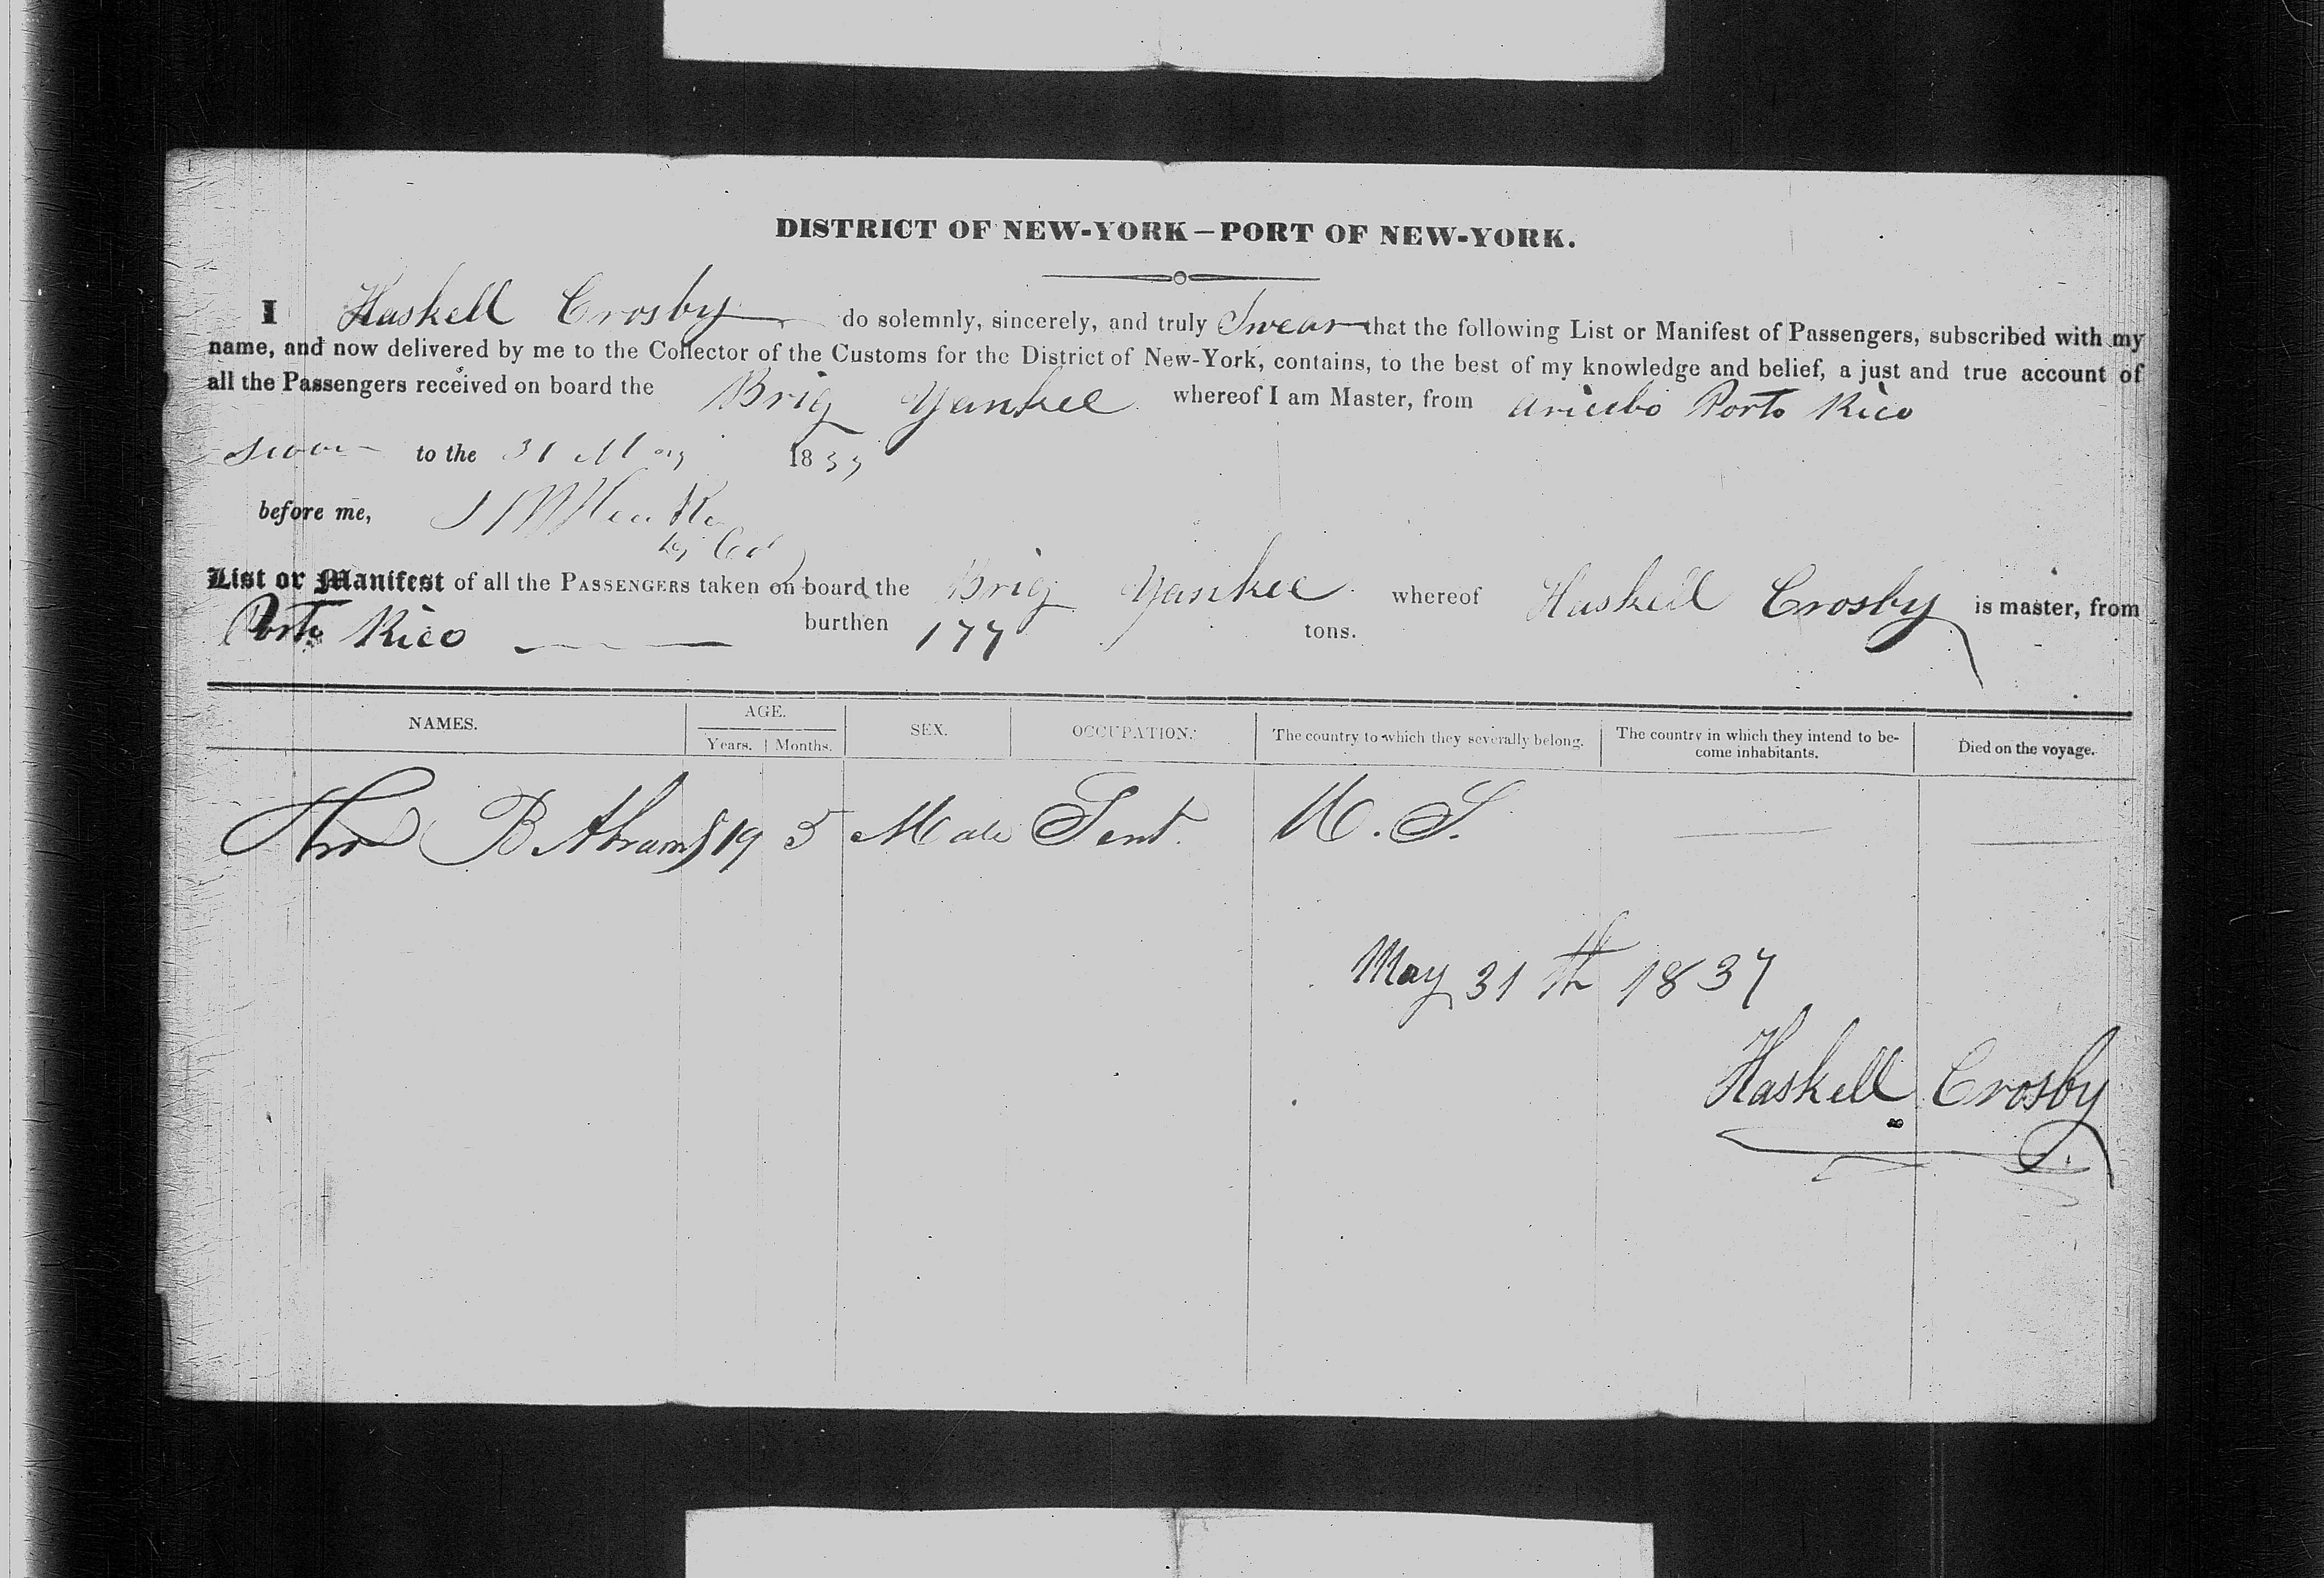 DISTRICT OF NEW-YORK—PORT OF NEW-YORK.
I Haskell Crosby do solemnly, sincerely, and truly Swear that the following List or Manifest of Passengers, subscribed with my
name, and now delivered by me to the Collector of the Customs for the District of New-York, contains, to the best of my knowledge and belief, a just and true account of
all the Passengers received on board the Brig Yankee whereof I am Master, from Aricibo Porto Rico
Sworn to the 31 May 1837
before me,
List or Manifest of all the PASSENGERS taken on board the Brig Yankee whereof Haskell Crosby is master, from
Porto Rico burthen 177 tons.
NAMES. AGE. Years. Months. SEX. OCCUPATION. The country to which they severally belong. The country in which they intend to become inhabitants. Died on the voyage.
Thos B Abrams 19 5 Male Gent. U. S.
May 31th 1837
Haskell Crosby